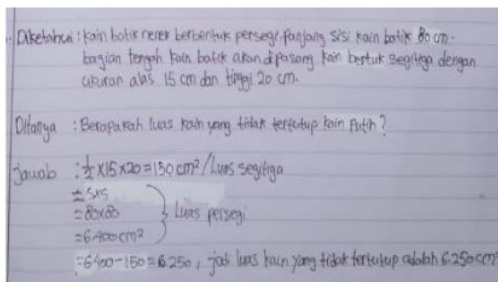 Diketahui : Kain batik nenek berbentuk persegi. Panjang sisi kain batik 80 cm.
bagian tengah kain batik akan dipasang kain bentuk segitiga dengan
ukuran alas 15 cm dan tinggi 20 cm.
Ditanya : Berapakah luas kain yang tidak tertutup kain putih?
Jawab : ½ x 15 x 20 = 150 cm² / Luas segitiga
= SxS
= 80x80 } Luas persegi
= 6.400 cm²
= 6400 - 150 = 6.250, jadi luas kain yang tidak tertutup adalah 6.250 cm²